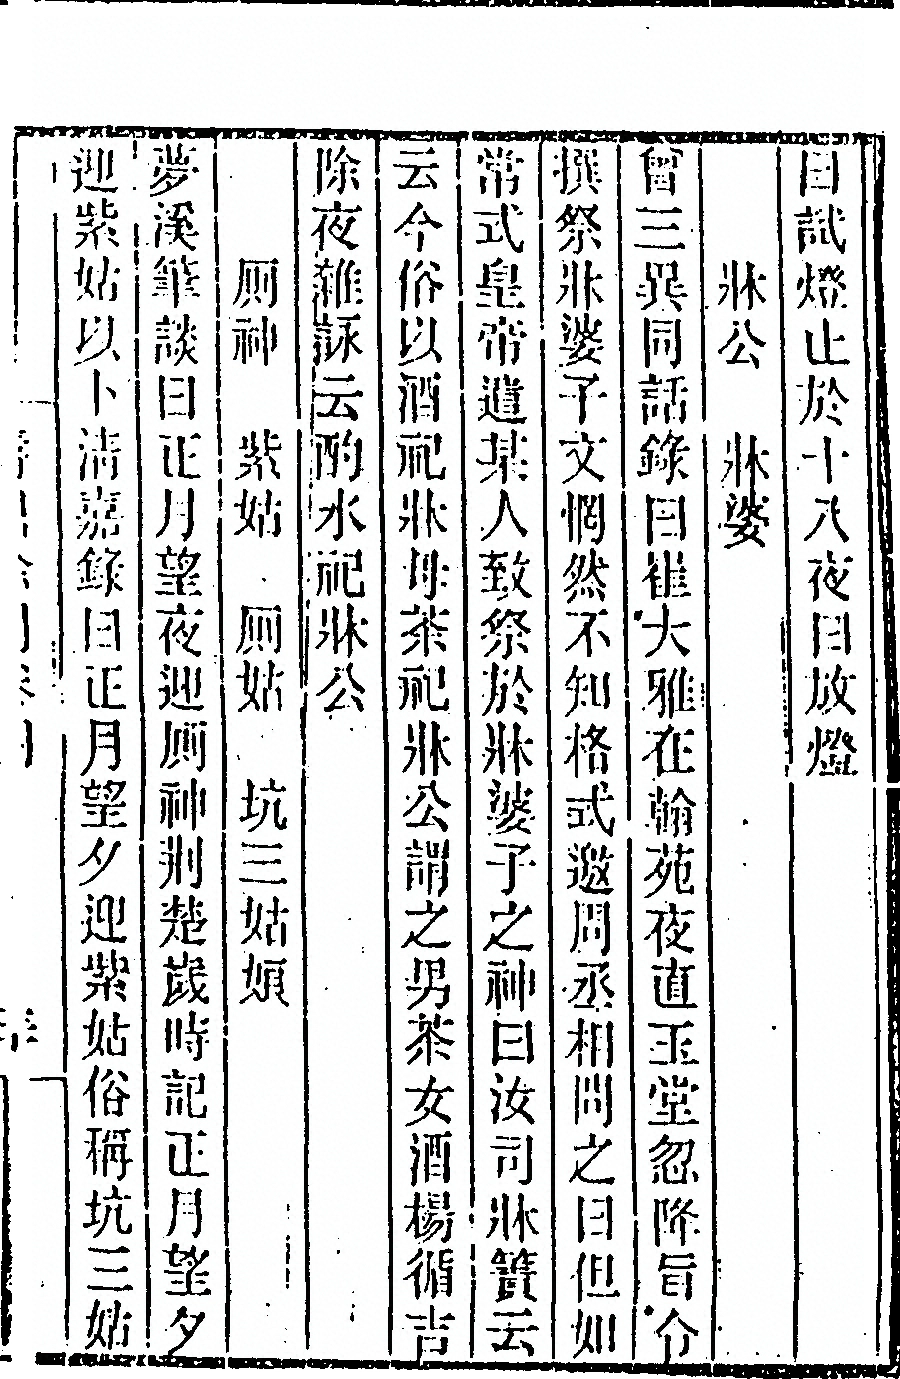 日試燈止於十八夜日放燈
牀公　牀婆
曾三異同話錄曰崔大雅在翰苑夜直玉堂忽降旨令
撰祭牀婆子文惘然不知格式邀周丞相問之曰但如
常式皇帝遣某人致祭於牀婆子之神曰汝司牀簀云
云今俗以酒祀牀母茶祀牀公謂之男茶女酒楊循吉
除夜雜詠云酌水祀牀公
厠神　紫姑　厠姑　坑三姑娘
夢溪筆談曰正月望夜迎厠神荆楚歲時記正月望夕
迎紫姑以卜清嘉錄曰正月望夕迎紫姑俗稱坑三姑